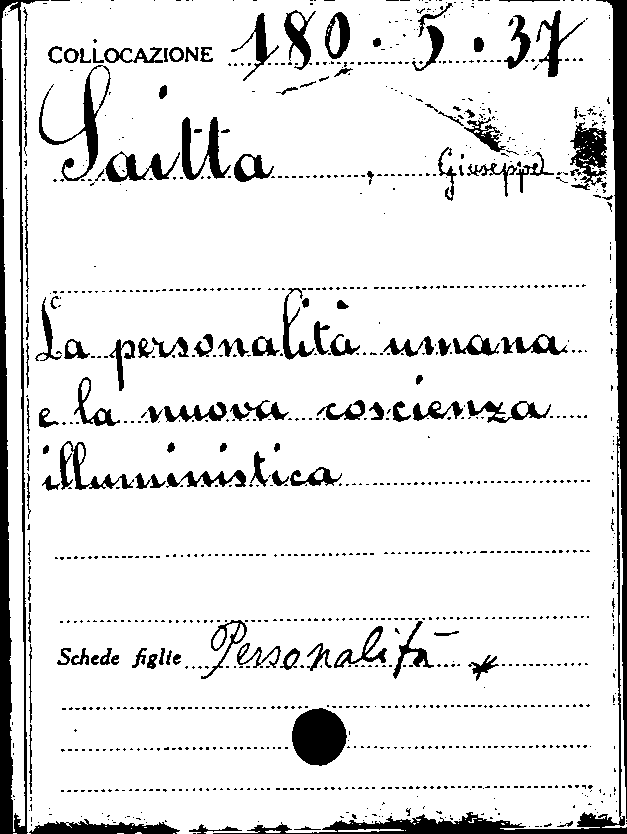 COLLOCAZIONE 180.5.37
Saitta, Giuseppe
La personalità umana
e la nuova coscienza
illuministica
Schede figlie Personalità *